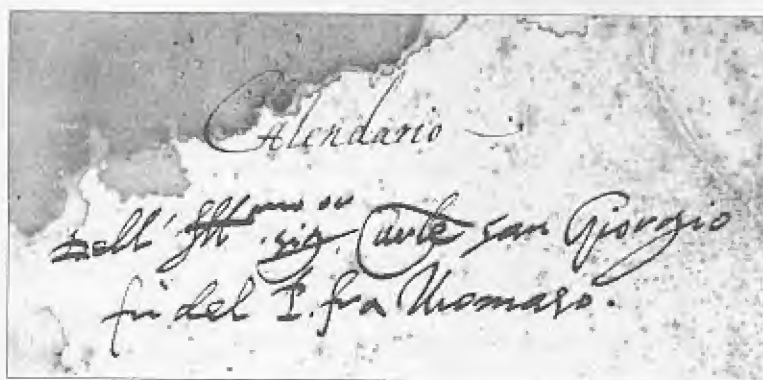 Calendario
Dell' Ill.mo sig.or Car.le san Giorgio
fu del P. fra Thomaso.